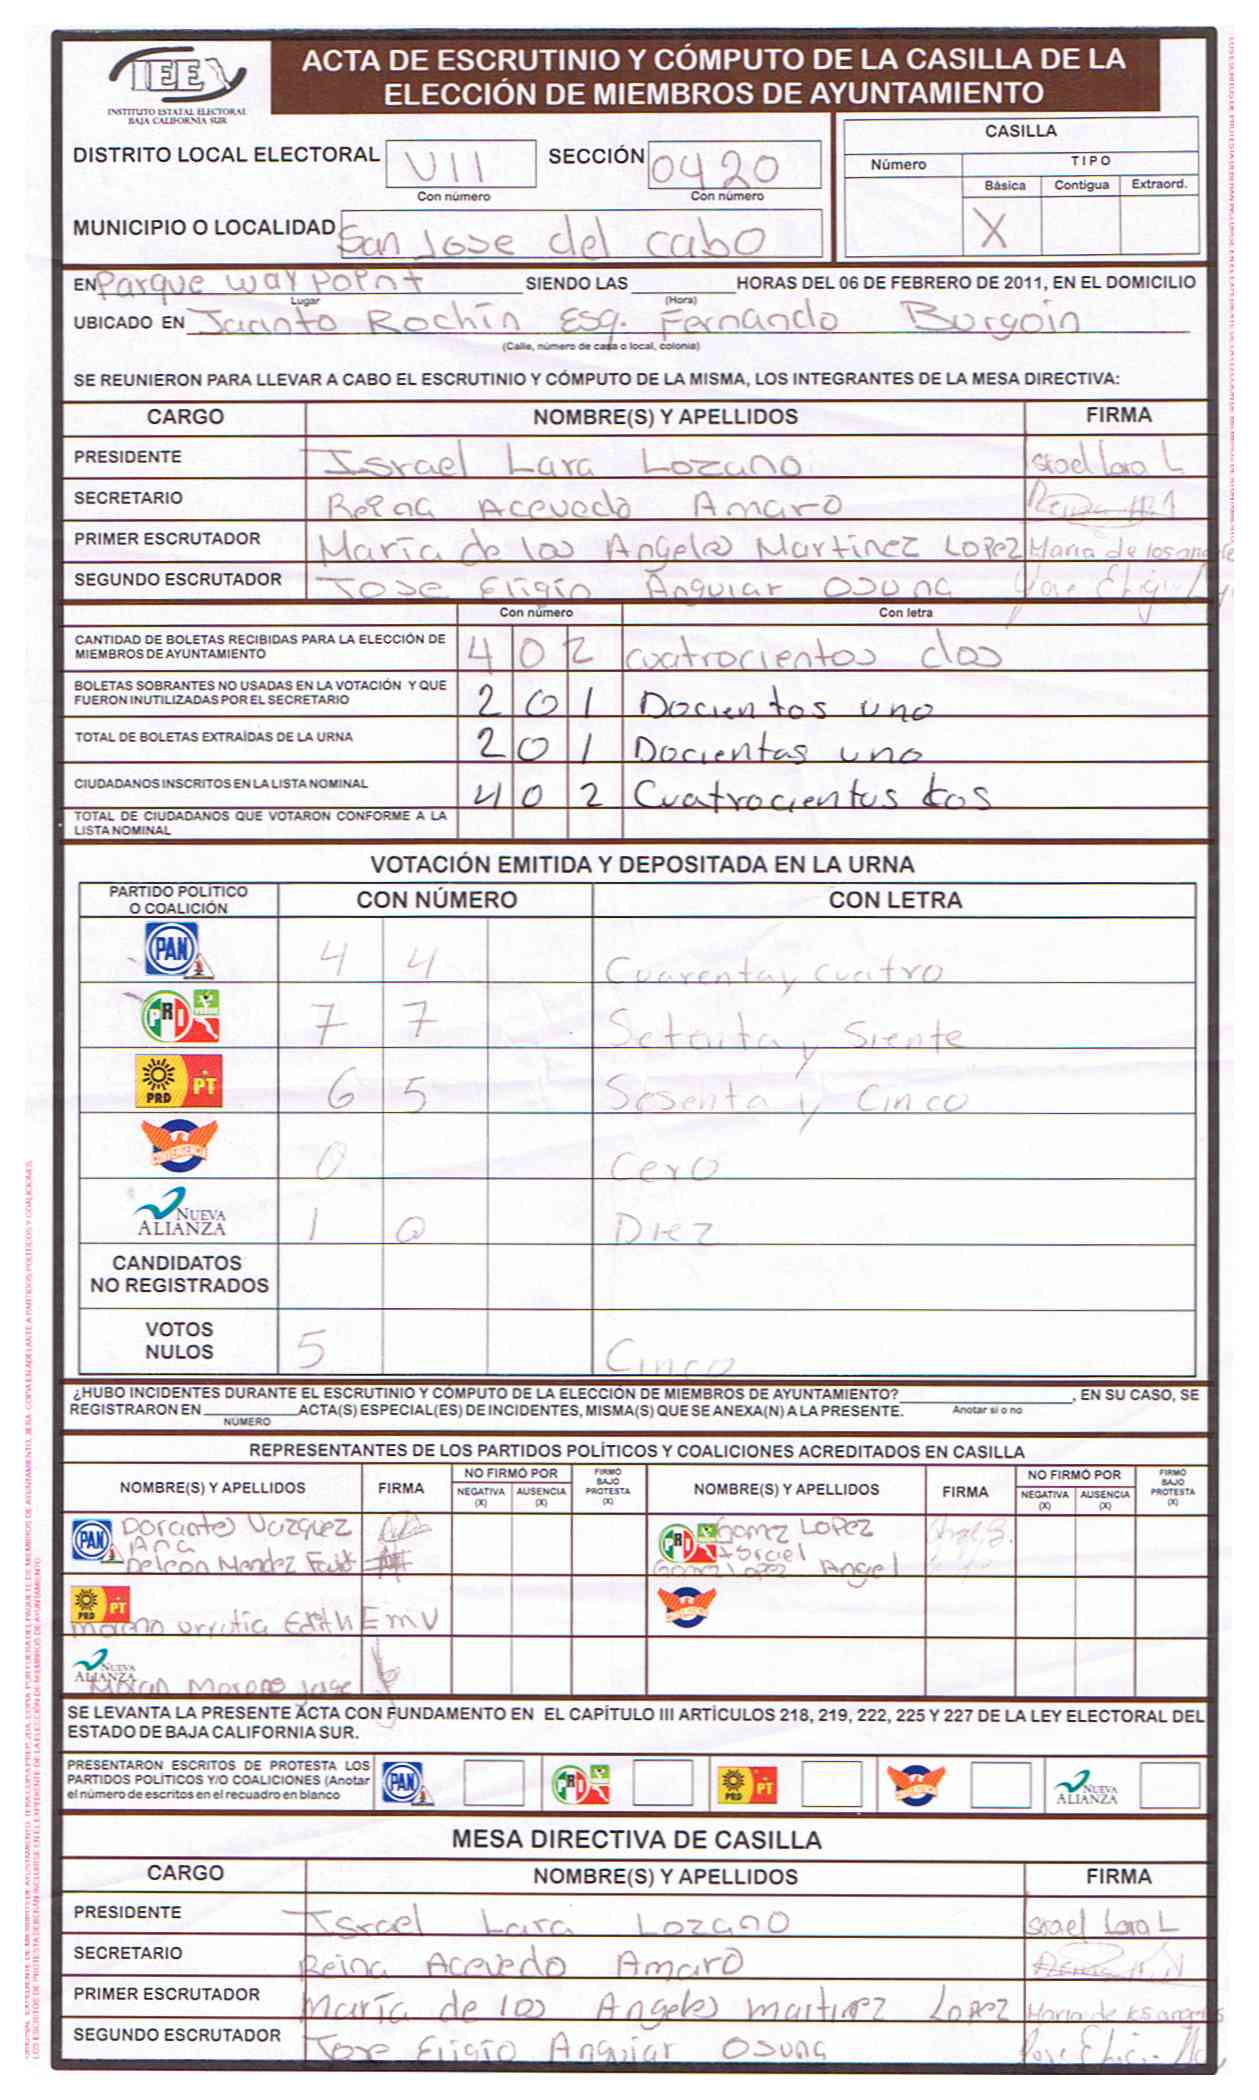 IEE
INSTITUTO ESTATAL ELECTORAL
BAJA CALIFORNIA SUR
ACTA DE ESCRUTINIO Y CÓMPUTO DE LA CASILLA DE LA
ELECCIÓN DE MIEMBROS DE AYUNTAMIENTO
DISTRITO LOCAL ELECTORAL VII SECCIÓN 0420
Con número Con número
CASILLA
Número TIPO
Básica Contigua Extraord.
X
MUNICIPIO O LOCALIDAD San Jose del cabo
EN Parque waypoint SIENDO LAS ______ HORAS DEL 06 DE FEBRERO DE 2011, EN EL DOMICILIO
Lugar (Hora)
UBICADO EN Jacinto Rochín Esq. Fernando Burgoin
(Calle, número de casa o local, colonia)
SE REUNIERON PARA LLEVAR A CABO EL ESCRUTINIO Y CÓMPUTO DE LA MISMA, LOS INTEGRANTES DE LA MESA DIRECTIVA:
CARGO NOMBRE(S) Y APELLIDOS FIRMA
PRESIDENTE Israel Lara Lozano Israel Lara L
SECRETARIO Reina Acevedo Amaro
PRIMER ESCRUTADOR María de los Angeles Martinez Lopez Maria de los angeles
SEGUNDO ESCRUTADOR Jose Eligio Anguiar Osuna Jose Eligio
Con número Con letra
CANTIDAD DE BOLETAS RECIBIDAS PARA LA ELECCIÓN DE
MIEMBROS DE AYUNTAMIENTO 4 0 2 cuatrocientos dos
BOLETAS SOBRANTES NO USADAS EN LA VOTACIÓN Y QUE
FUERON INUTILIZADAS POR EL SECRETARIO 2 0 1 Docientos uno
TOTAL DE BOLETAS EXTRAÍDAS DE LA URNA 2 0 1 Docientas uno
CIUDADANOS INSCRITOS EN LA LISTA NOMINAL 4 0 2 Cuatrocientos dos
TOTAL DE CIUDADANOS QUE VOTARON CONFORME A LA
LISTA NOMINAL
VOTACIÓN EMITIDA Y DEPOSITADA EN LA URNA
PARTIDO POLÍTICO
O COALICIÓN CON NÚMERO CON LETRA
PAN 4 4 Cuarenta y cuatro
PRI VERDE 7 7 Setenta y Siente
PRD PT 6 5 Sesenta y Cinco
CONVERGENCIA 0 Cero
NUEVA
ALIANZA 1 0 Diez
CANDIDATOS
NO REGISTRADOS
VOTOS
NULOS 5 Cinco
¿HUBO INCIDENTES DURANTE EL ESCRUTINIO Y CÓMPUTO DE LA ELECCIÓN DE MIEMBROS DE AYUNTAMIENTO?______, EN SU CASO, SE
REGISTRARON EN ______ ACTA(S) ESPECIAL(ES) DE INCIDENTES, MISMA(S) QUE SE ANEXA(N) A LA PRESENTE. Anotar si o no
NÚMERO
REPRESENTANTES DE LOS PARTIDOS POLÍTICOS Y COALICIONES ACREDITADOS EN CASILLA
NOMBRE(S) Y APELLIDOS FIRMA NO FIRMÓ POR NEGATIVA (X) AUSENCIA (X) FIRMÓ BAJO PROTESTA (X) NOMBRE(S) Y APELLIDOS FIRMA NO FIRMÓ POR NEGATIVA (X) AUSENCIA (X) FIRMÓ BAJO PROTESTA (X)
PAN Dorantes Vazquez PRI Gomez Lopez
Ana Israel
Deleon Mendez Gomez Lopez Angel
PRD PT CONVERGENCIA
Moreno urrutia Edith E m U
NUEVA
ALIANZA
Moran Moreno Jorge
SE LEVANTA LA PRESENTE ACTA CON FUNDAMENTO EN EL CAPÍTULO III ARTÍCULOS 218, 219, 222, 225 Y 227 DE LA LEY ELECTORAL DEL
ESTADO DE BAJA CALIFORNIA SUR.
PRESENTARON ESCRITOS DE PROTESTA LOS
PARTIDOS POLÍTICOS Y/O COALICIONES (Anotar
el número de escritos en el recuadro en blanco
PAN PRI PRD PT CONVERGENCIA NUEVA ALIANZA
MESA DIRECTIVA DE CASILLA
CARGO NOMBRE(S) Y APELLIDOS FIRMA
PRESIDENTE Israel Lara Lozano Israel Lara L
SECRETARIO Reina Acevedo Amaro
PRIMER ESCRUTADOR María de los Angeles martinez Lopez Maria de los angeles
SEGUNDO ESCRUTADOR Jose Eligio Anguiar Osuna Jose Eligio